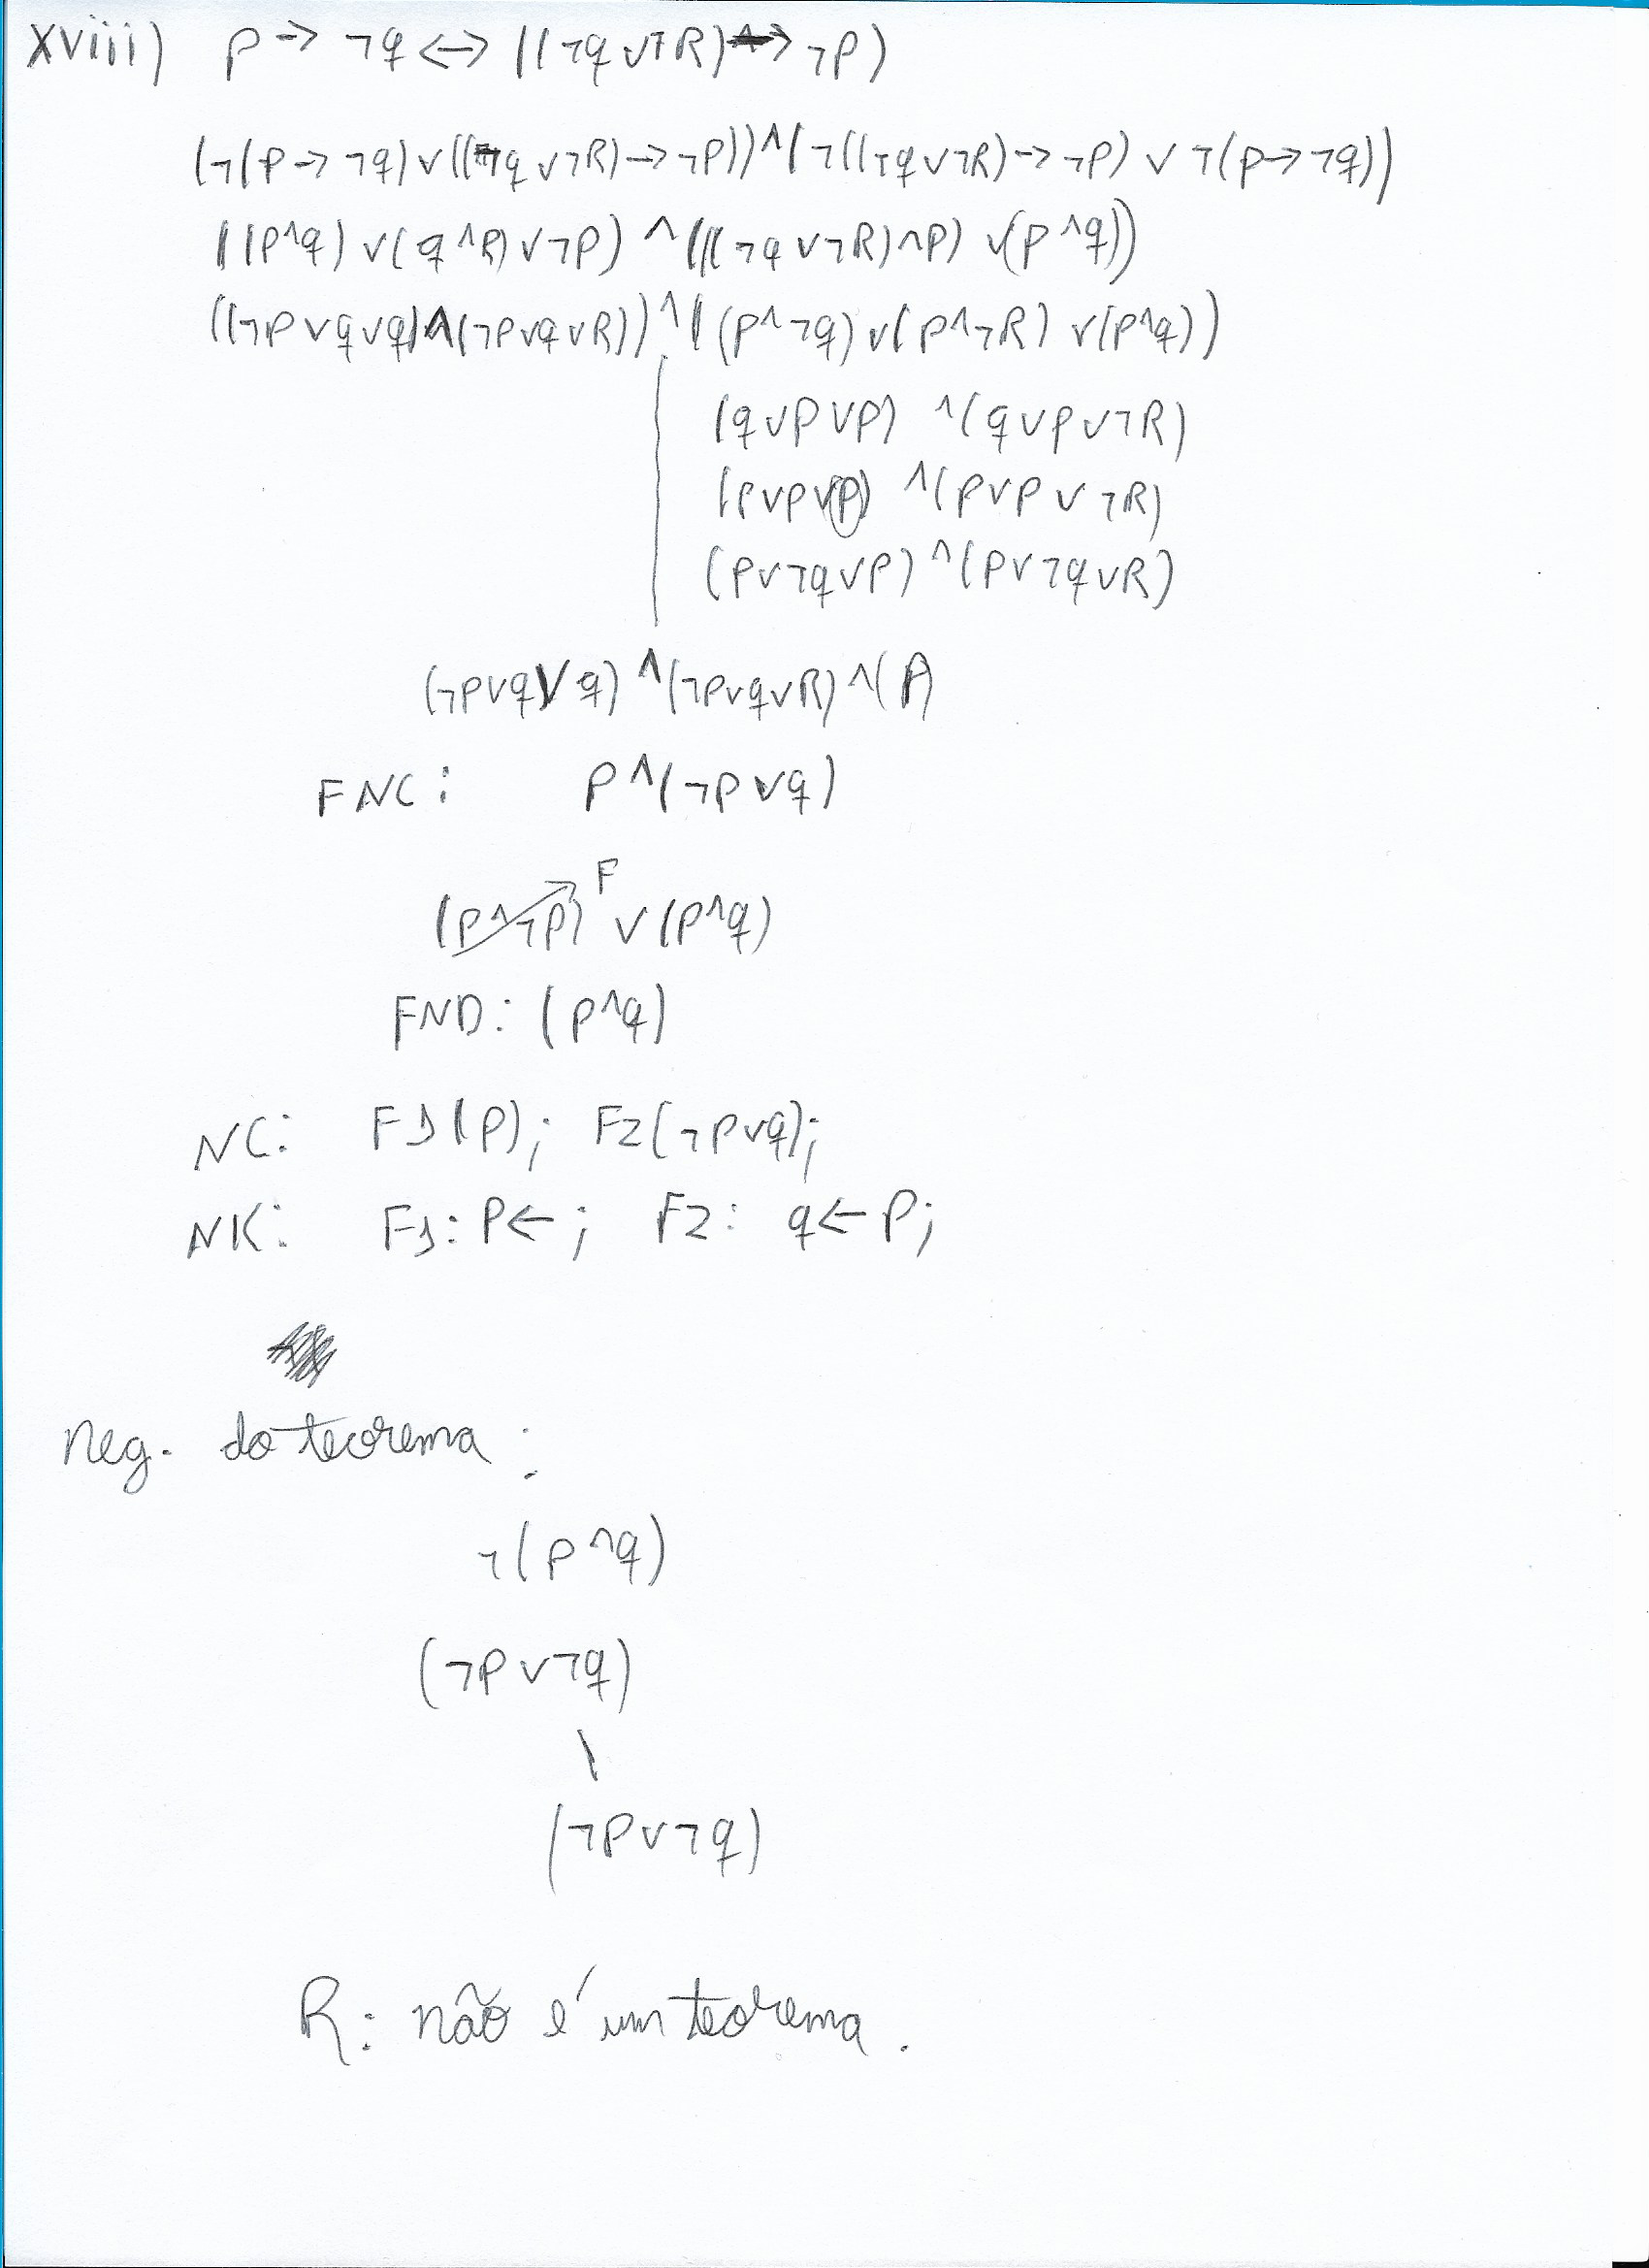 xviii) p → ¬q ↔ ((¬q ∨ ¬R) → ¬p)
(¬(p → ¬q) ∨ ((¬q ∨ ¬R) → ¬p)) ∧ (¬((¬q ∨ ¬R) → ¬p) ∨ ¬(p → ¬q))
((p ∧ q) ∨ (q ∧ R) ∨ ¬p) ∧ (((¬q ∨ ¬R) ∧ p) ∨ (p ∧ q))
((¬p ∨ q ∨ q) ∧ (¬p ∨ q ∨ R)) ∧ ((p ∧ ¬q) ∨ (p ∧ ¬R) ∨ (p ∧ q))
(q ∨ p ∨ p) ∧ (q ∨ p ∨ ¬R)
(p ∨ p ∨ p) ∧ (p ∨ p ∨ ¬R)
(p ∨ ¬q ∨ p) ∧ (p ∨ ¬q ∨ R)
(¬p ∨ q ∨ q) ∧ (¬p ∨ q ∨ R) ∧ (p)
FNC: p ∧ (¬p ∨ q)
F
(p ∧ ¬p) ∨ (p ∧ q)
FND: (p ∧ q)
NC: F1(p); F2(¬p ∨ q);
NK: F1: p ←; F2: q ← p;
Neg. do teorema:
¬(p ∧ q)
(¬p ∨ ¬q)
\
(¬p ∨ ¬q)
R: não é um teorema.